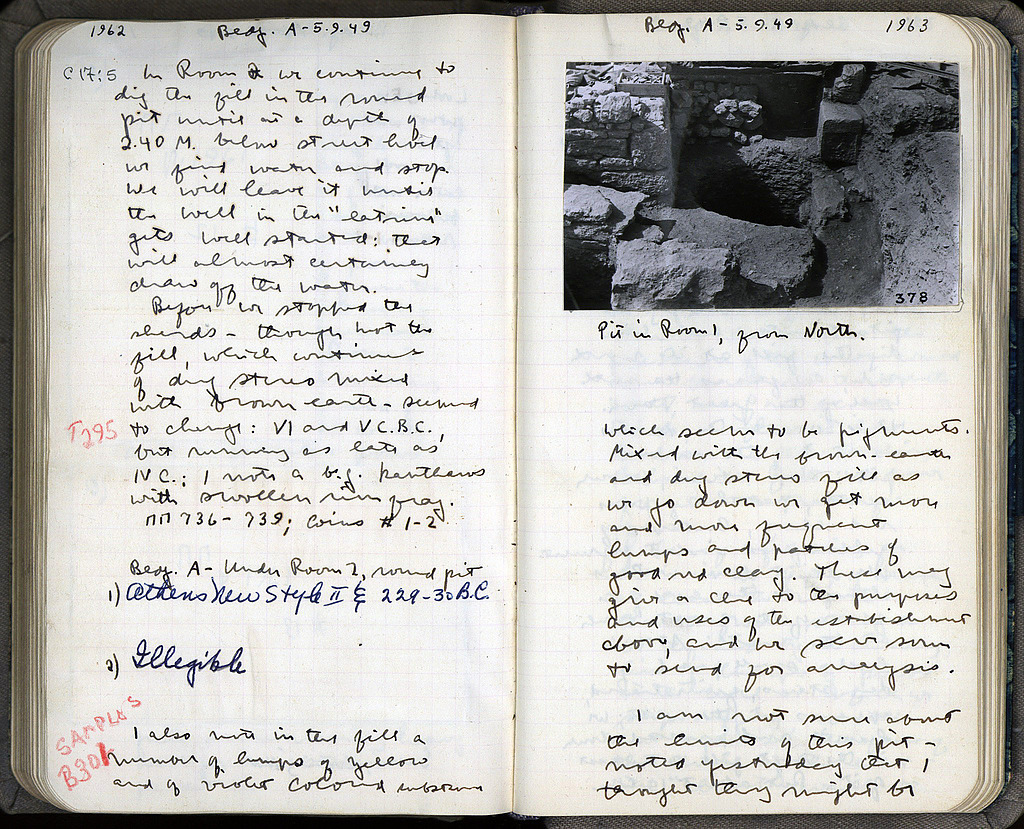 1962
Bedg. A - 5.9.49
C 17:5 In Room 2 we continue to
dig the fill in the round
pit until at a depth of
2.40 M. below street level
we find water and stop.
We will leave it until
the well in the "latrine"
gets well started: that
will almost certainly
draw off the water.
Before we stopped the
sherds - though not the
fill, which continues
of dug stereo mixed
with brown earth - seemed
T295
to change: VI and V C. B.C.,
but running as late as
IV C.; I note a b.g. kantharos
with swollen rim frag.
ΠΠ 736 - 739; Coins # 1-2.
Bedg. A - Under Room 2, round pit
1) Athens New Style II 229-30 B.C.
2) Illegible
SAMPLES
B301
I also note in the fill a
number of lumps of yellow
and of violet colored substance
Bedg. A - 5.9.49
1963
378
Pit in Room 1, from North.
which seem to be pigments.
Mixed with the brown earth
and dug stereo fill as
we go down we get more
and more frequent
lumps and patches of
good red clay. These may
give a clue to the purposes
and uses of the establishment
above, and we save some
to send for analysis.
I am not sure about
the limits of this pit -
noted yesterday that I
thought they might be